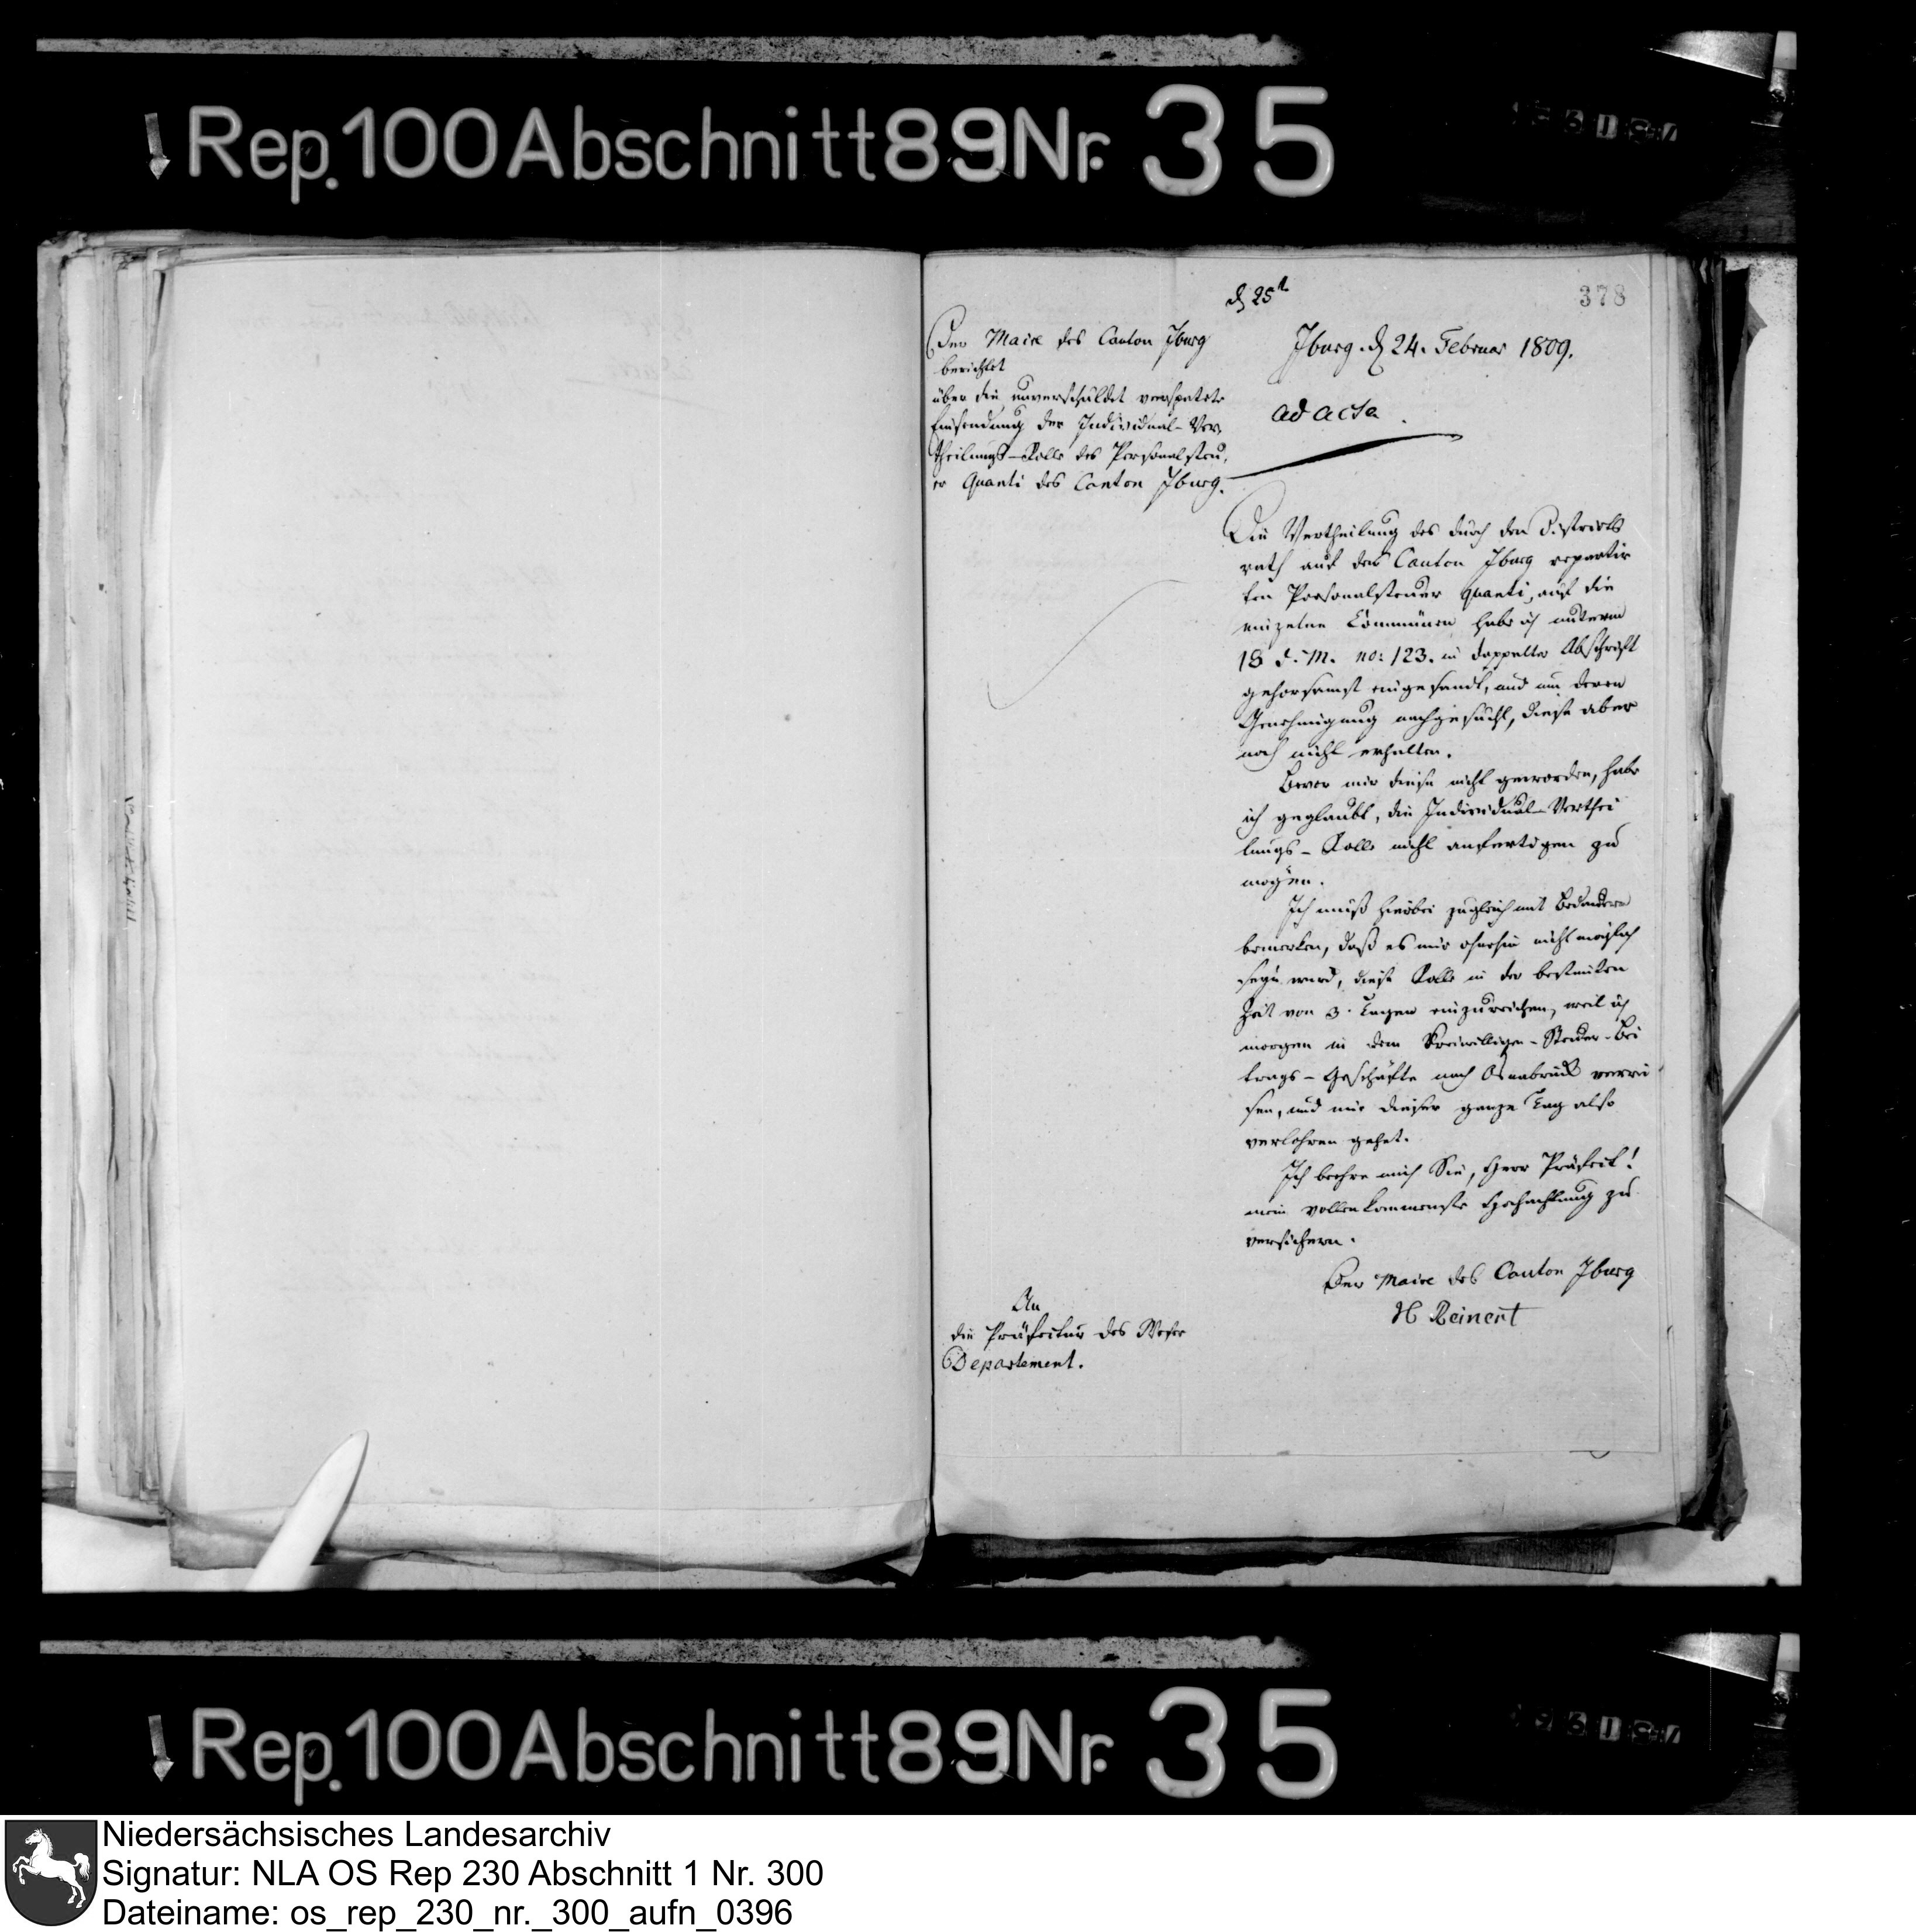 Rep. 100 Abschnitt 89 Nr. 35
378
d 25t
Der Maire des Canton Iburg
berichtet
über die unverschuldet verspätete
Einsendung der Individual-Ver
theilungs-Rolle des Personalsteu,
er Quanti des Canton Iburg.
Iburg. d 24. Februar 1809.
ad acta.
Die Vertheilung des durch den Districts
rath auf den Canton Iburg repartir
ten Personalsteuer quanti, auf die
einzelne Communen habe ich unterm
18 d. M. no: 123. in doppelter Abschrift
gehorsamst eingesandt, und um deren
Genehmigung nachgesucht, diese aber
noch nicht erhalten.
Bevor mir diese nicht geworden, habe
ich geglaubt, die Individual-Verthei
lungs-Rolle nicht anfertigen zu
mögen.
Ich muß hierbei zugleich mit Bedauern
bemerken, daß es mir ohnehin nicht möglich
seyn wird, diese Rolle in der bestimten
Zeit von 3. Tagen einzureichen, weil ich
morgen in dem Freiwilligen-Steuer-Bei
trags-Geschäfte nach Osnabrück verrei
sen, und mir dieser ganze Tag also
verlohren gehet.
Ich beehre mich Sie, Herr Präfect!
mein vollenkommenste Hochachtung zu
versichern.
Der Maire des Canton Iburg
H Reinert
An
die Präfectur des Weser
Departement.
Rep. 100 Abschnitt 89 Nr. 35
Niedersächsisches Landesarchiv
Signatur: NLA OS Rep 230 Abschnitt 1 Nr. 300
Dateiname: os_rep_230_nr._300_aufn_0396